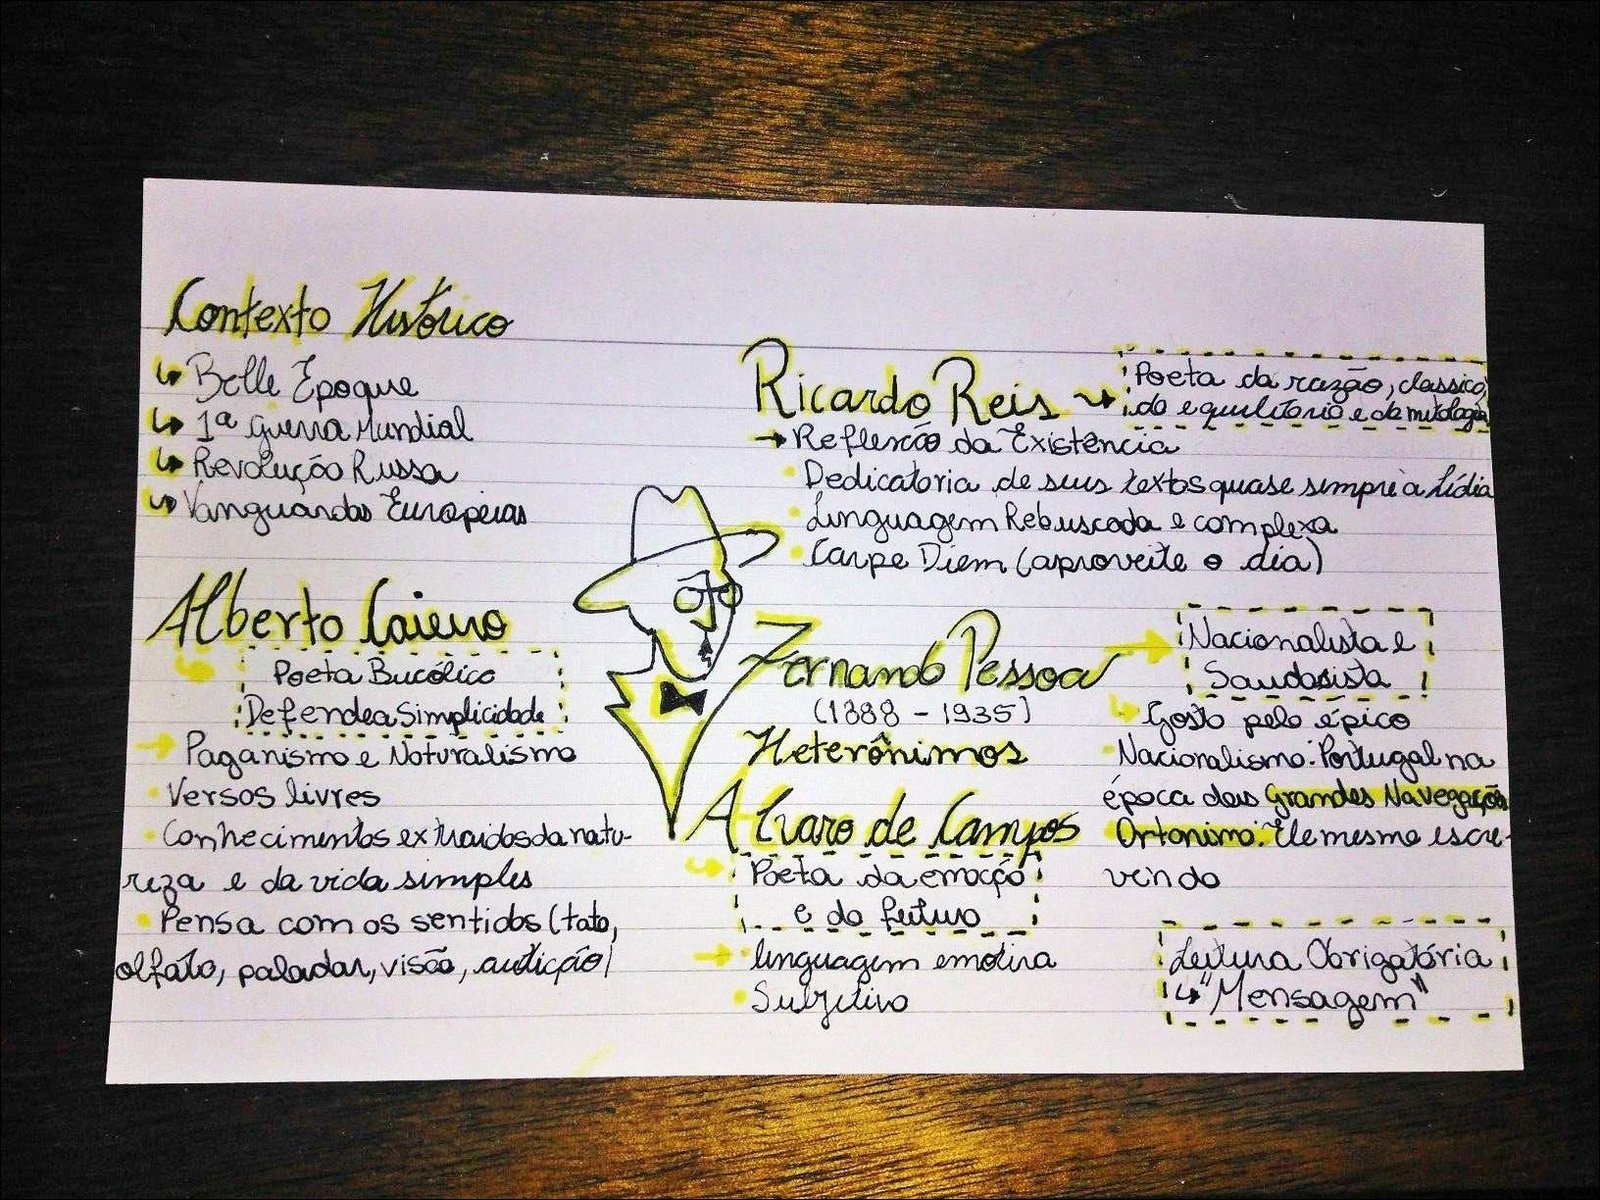 Contexto Histórico
Belle Époque
1ª Guerra Mundial
Revolução Russa
Vanguardas Europeias
Alberto Caieiro
Poeta Bucólico
Defende a Simplicidade
Paganismo e Naturalismo
Versos livres
Conhecimentos extraidos da natu-
reza e da vida simples
Pensa com os sentidos (tato,
olfato, paladar, visão, audição)
Ricardo Reis
Poeta da razão, classico,
do equilibrio e da mitologia
Reflexão da Existência
Dedicatoria de seus textos quase sempre a Lídia
Linguagem Rebuscada e complexa
Carpe Diem (aproveite o dia)
Fernando Pessoa
(1888 - 1935)
Heterônimos
Alvaro de Campos
Poeta da emoção
e do futuro
linguagem emotiva
Subjetivo
Nacionalista e
Saudosista
Gosto pelo épico
Nacionalismo: Portugal na
época das Grandes Navegações
Ortonimo: Ele mesmo escre-
vendo
Leitura Obrigatória
"Mensagem"